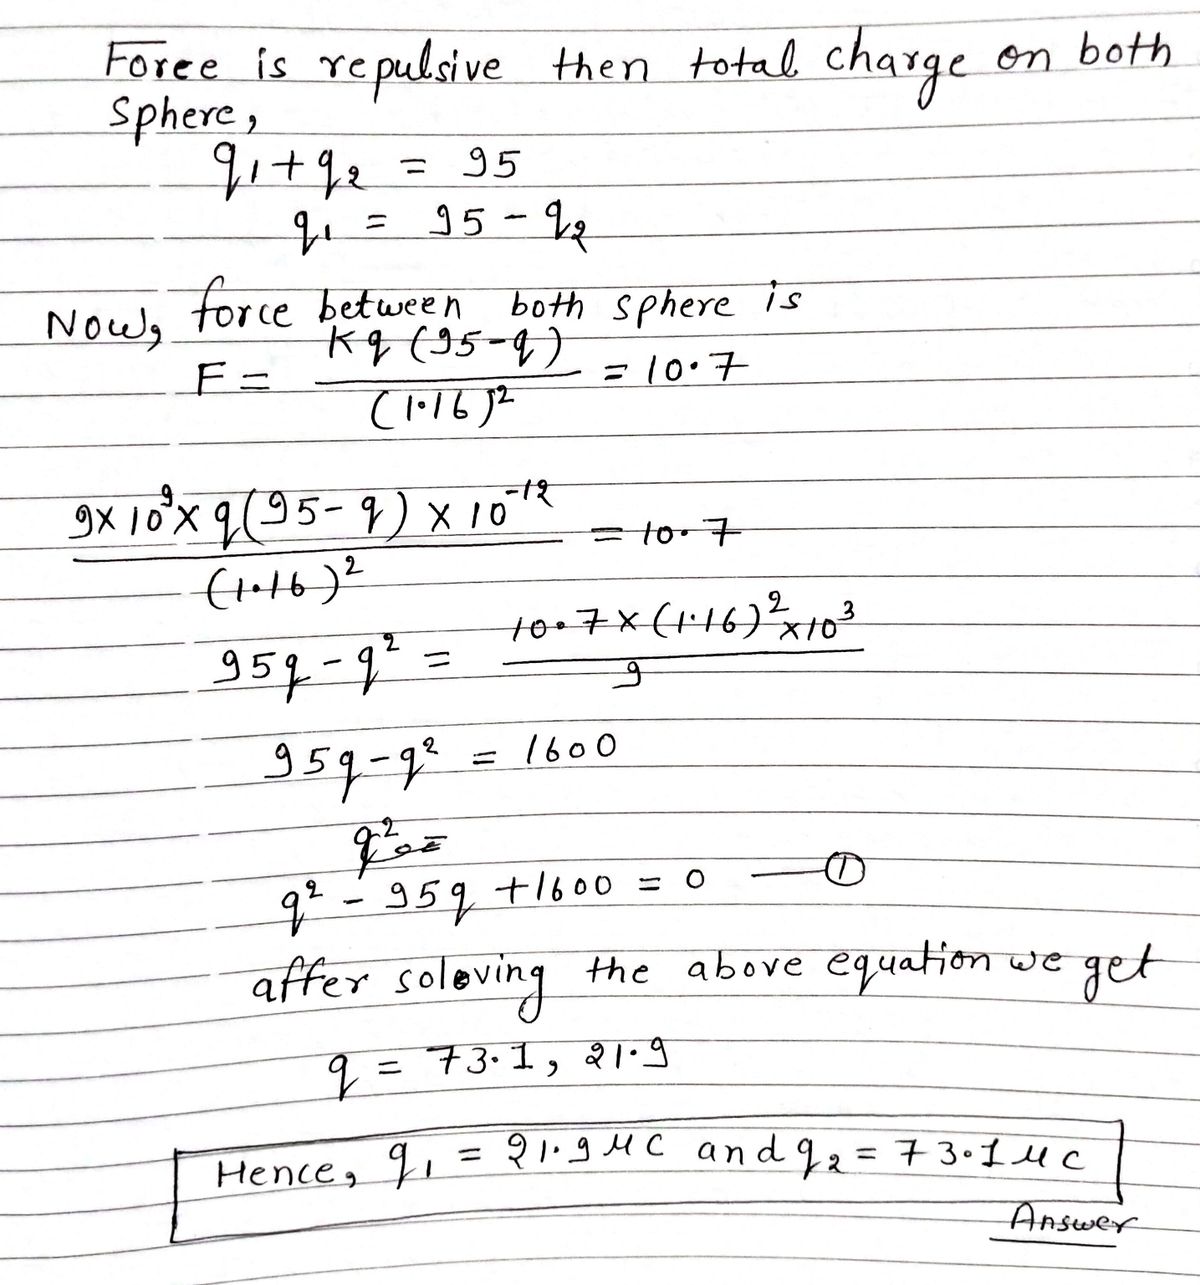 Force is repulsive then total charge on both
Sphere,
q₁ + q₂ = 95
q₁ = 95 - q₂
Now, force between both sphere is
F = Kq (95-q) / (1.16)² = 10.7
9×10⁹× q(95-q) × 10⁻¹² / (1.16)² = 10.7
95q - q² = 10.7 × (1.16)² × 10³ / 9
95q - q² = 1600
q² =
q² - 95q + 1600 = 0 — ①
affer soloving the above equation we get
q = 73.1, 21.9
Hence, q₁ = 21.9 μC and q₂ = 73.1 μC
Answer